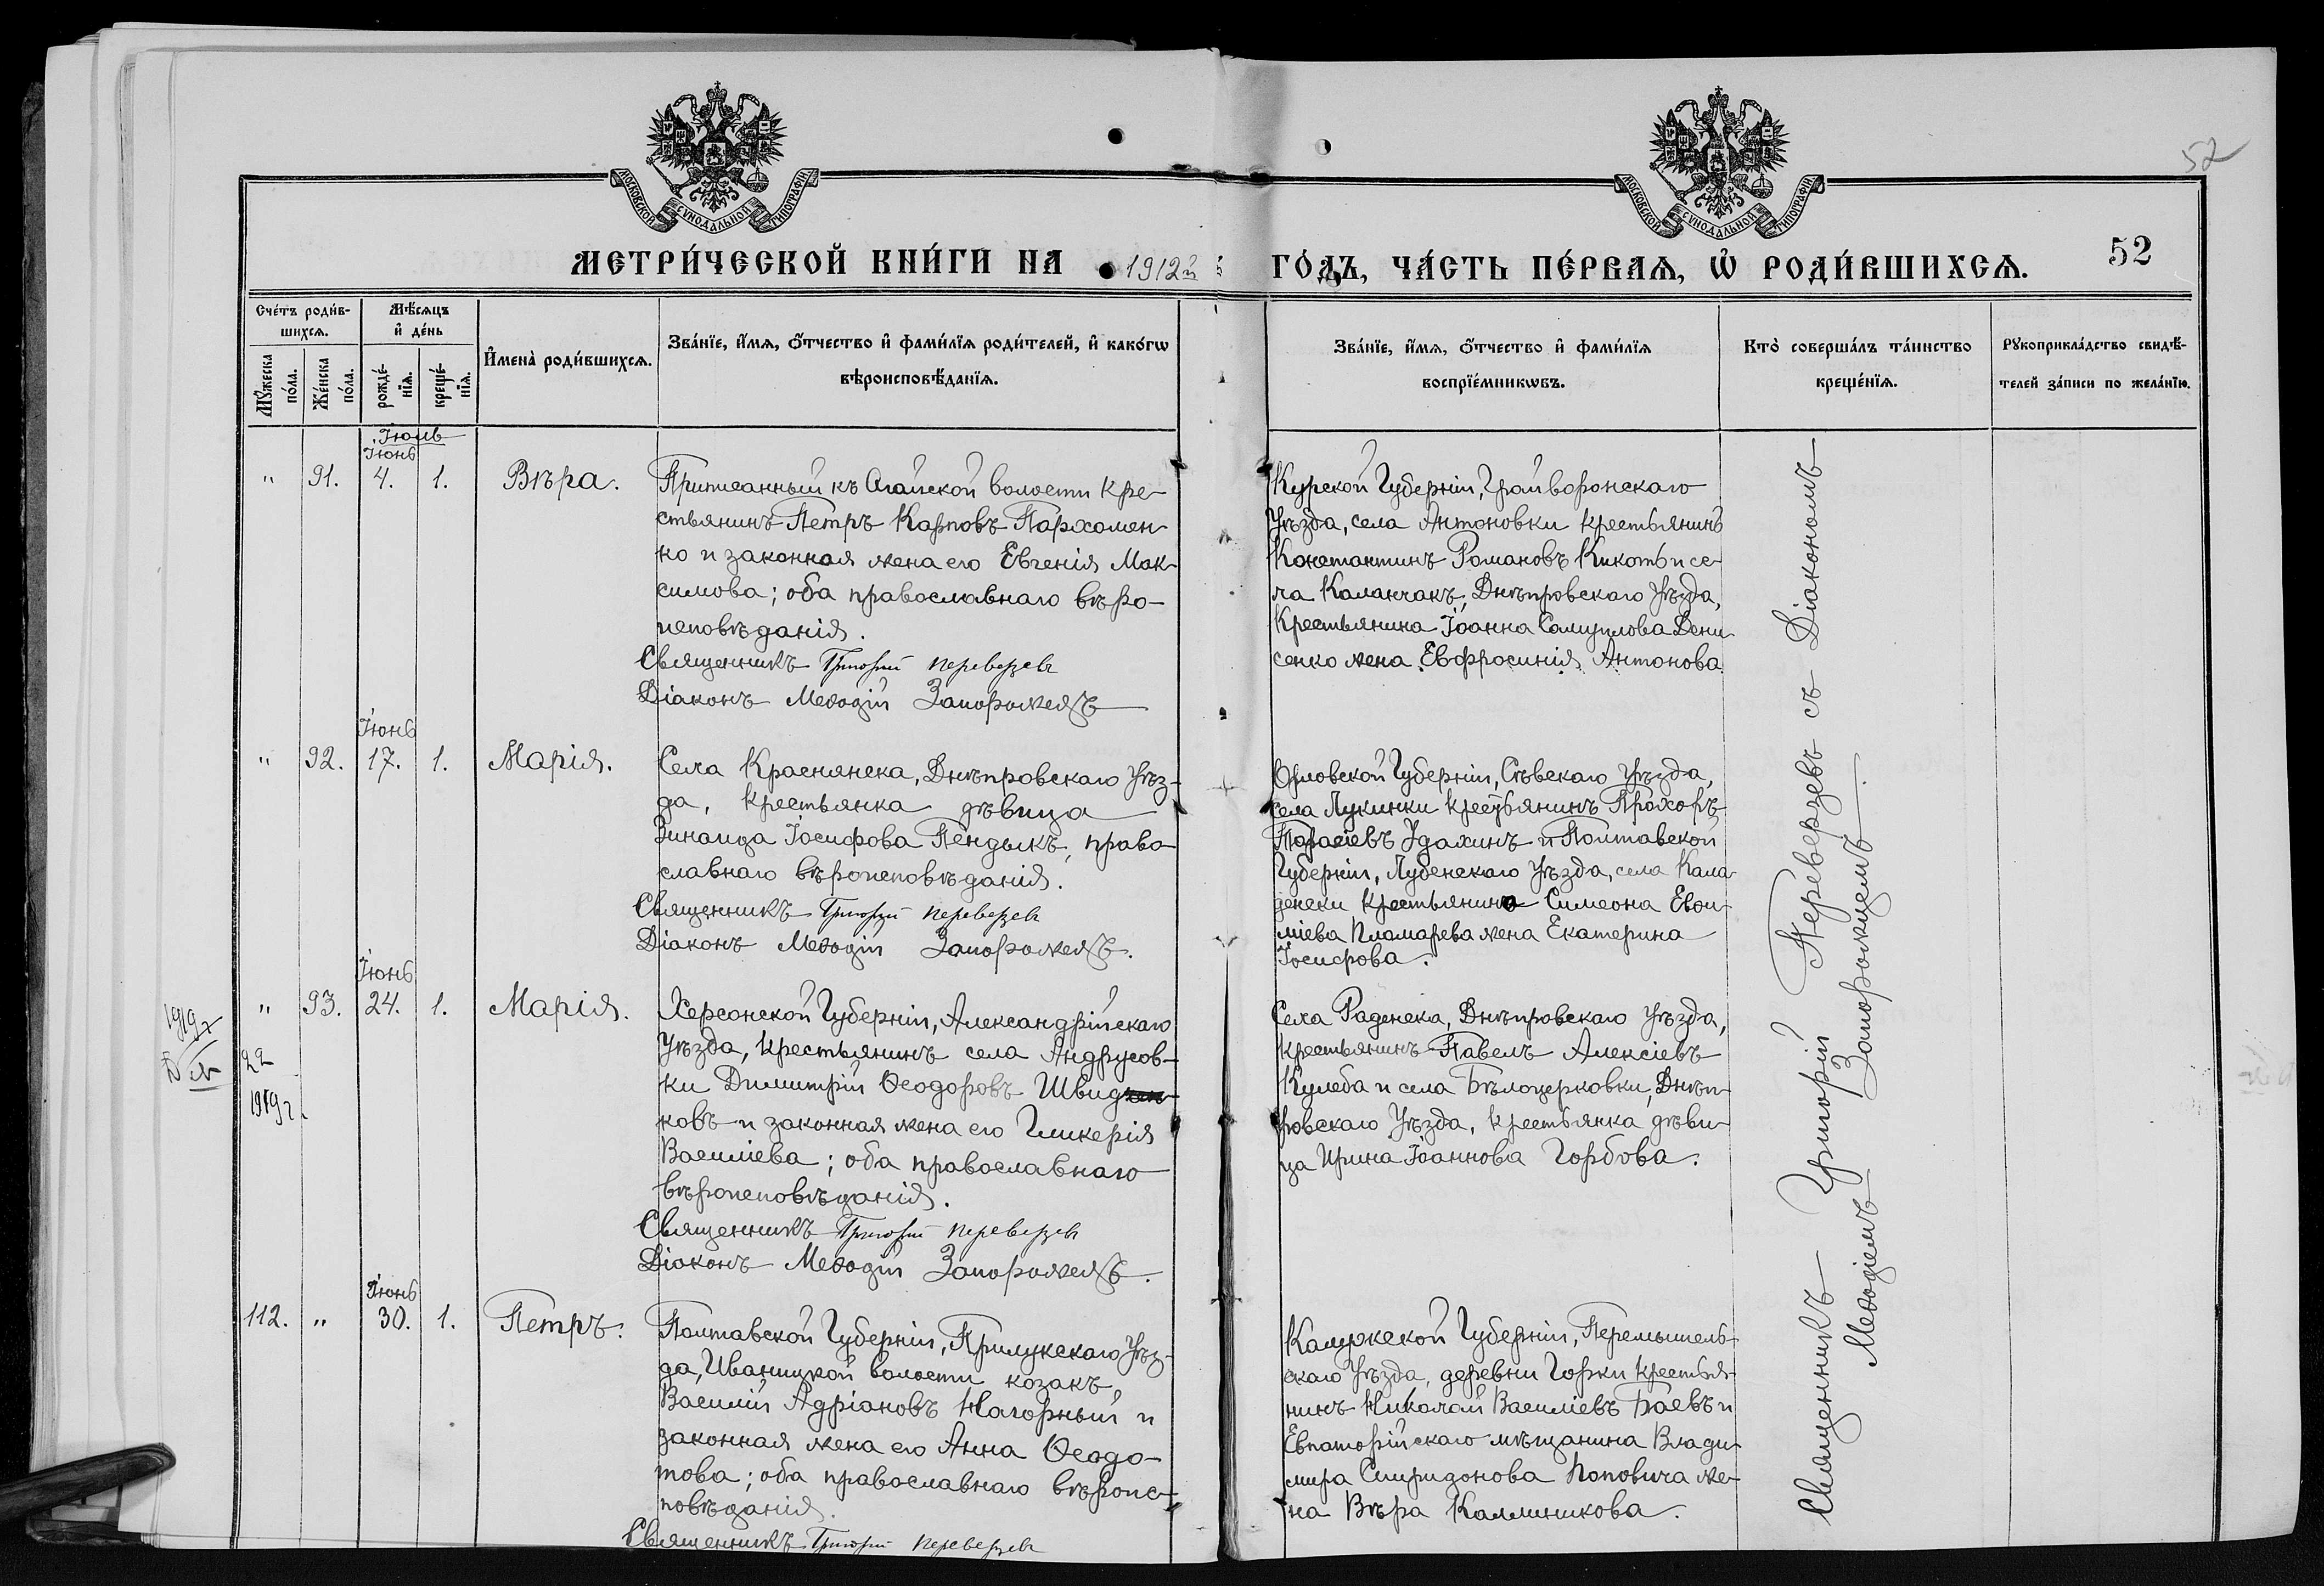 МОСКОВСКОЙ СУНОДАЛЬНОЙ ТИПОГРАФІИ
МОСКОВСКОЙ СУНОДАЛЬНОЙ ТИПОГРАФІИ
52
МЕТРИ́ЧЕСКОЙ КНИ́ГИ НА 1912й
ГО́ДЪ, ЧА́СТЬ ПЕ́РВАЯ, Ѡ҆ РОДИ́ВШИХСЯ.
52
Сче́тъ роди́в-
шихся.
Му́жеска
по́ла.
Же́нска
по́ла.
Мѣ́сяцъ
и҆ де́нь
рожде́-
нїя.
креще́-
нїя.
И҆мена̀ роди́вшихся.
Зва́нїе, и҆́мя, о҆́тчество и҆ фами́лїя роди́телей, и҆ како́гѡ
вѣроисповѣ́данїя.
Зва́нїе, и҆́мя, о҆́тчество и҆ фами́лїя
воспрїе́мникѡвъ.
Кто̀ соверша́лъ та́инство
креще́нїя.
Рукоприкла́дство свидѣ́-
телей за́писи по жела́нїю.
Іюль
Іюнь
" 91. 4. 1. Вѣра.
Приписанный къ Агайской волости кре-
стьянинъ Петръ Карповъ Пархомен-
ко и законная жена его Евгенія Мак-
симова; оба православнаго вѣро-
исповѣданія.
Священникъ Григорій Переверзевъ
Діаконъ Меѳодій Запорожецъ
Курской Губерніи, Грайворонскаго
Уѣзда, села Антоновки крестьянинъ
Константинъ Романовъ Кикоть и се-
ла Каланчакъ, Днѣпровскаго Уѣзда,
Крестьянина Іоанна Самуилова Дени-
сенко жена Евфросинія Антонова.
Іюнь
" 92. 17. 1. Марія.
Села Краснянска, Днѣпровскаго Уѣз-
да, крестьянка дѣвица
Зинаида Іосифова Пендыкъ, право-
славнаго вѣроисповѣданія.
Священникъ Григорій Переверзевъ
Діаконъ Меѳодій Запорожецъ.
Орловской Губерніи, Сѣвскаго Уѣзда,
села Лукинки крестьянинъ Прохоръ
Тарасіевъ Удахинъ и Полтавской
Губерніи, Лубенскаго Уѣзда, села
крестьянина Симеона Евѳи-
міева жена Екатерина
Іосифова.
Іюнь
" 93. 24. 1. Марія.
1919 г
22
1919 г.
Херсонской Губерніи, Александрійскаго
Уѣзда, крестьянинъ села Андрусов-
ки Димитрій Ѳеодоровъ Швид
ковъ и законная жена его Гликерія
Василіева; оба православнаго
вѣроисповѣданія.
Священникъ Григорій Переверзевъ
Діаконъ Меѳодій Запорожецъ.
Села Раденска, Днѣпровскаго Уѣзда,
крестьянинъ Павелъ Алексіевъ
Кулеба и села Бѣлоцерковки, Днѣп-
ровскаго Уѣзда, крестьянка дѣви-
ца Ирина Іоаннова Горбова.
Іюнь
112. " 30. 1. Петръ.
Полтавской Губерніи, Прилукскаго Уѣз-
да, Иваницкой волости козакъ,
Василій Адріановъ Нагорный и
законная жена его Анна Ѳеодо-
това; оба православнаго вѣроис-
повѣданія.
Священникъ Григорій Переверзевъ
Калужской Губерніи, Перемышель-
скаго Уѣзда, деревни Горки крестья-
нинъ Николай Василіевъ Баевъ и
Евпаторійскаго мѣщанина Влади-
мира Спиридонова Поповича же-
на Вѣра Каллиникова.
Священникъ Григорій Переверзевъ съ Діакономъ
Меѳодіемъ Запорожцемъ.